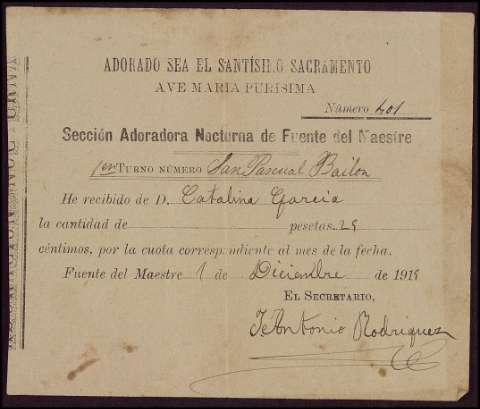 ADORADO SEA EL SANTÍSIMO SACRAMENTO
AVE MARÍA PURÍSIMA
Número 401
Sección Adoradora Nocturna de Fuente del Maestre
1er TURNO NÚMERO San Pascual Bailon
He recibido de D. Catalina Garcia
la cantidad de pesetas 25
céntimos, por la cuota correspondiente al mes de la fecha.
Fuente del Maestre 1 de Diciembre de 191
EL SECRETARIO,
Antonio Rodriguez